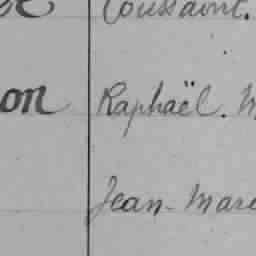 Toussaint.
on Raphaël. M
Jean-Marc